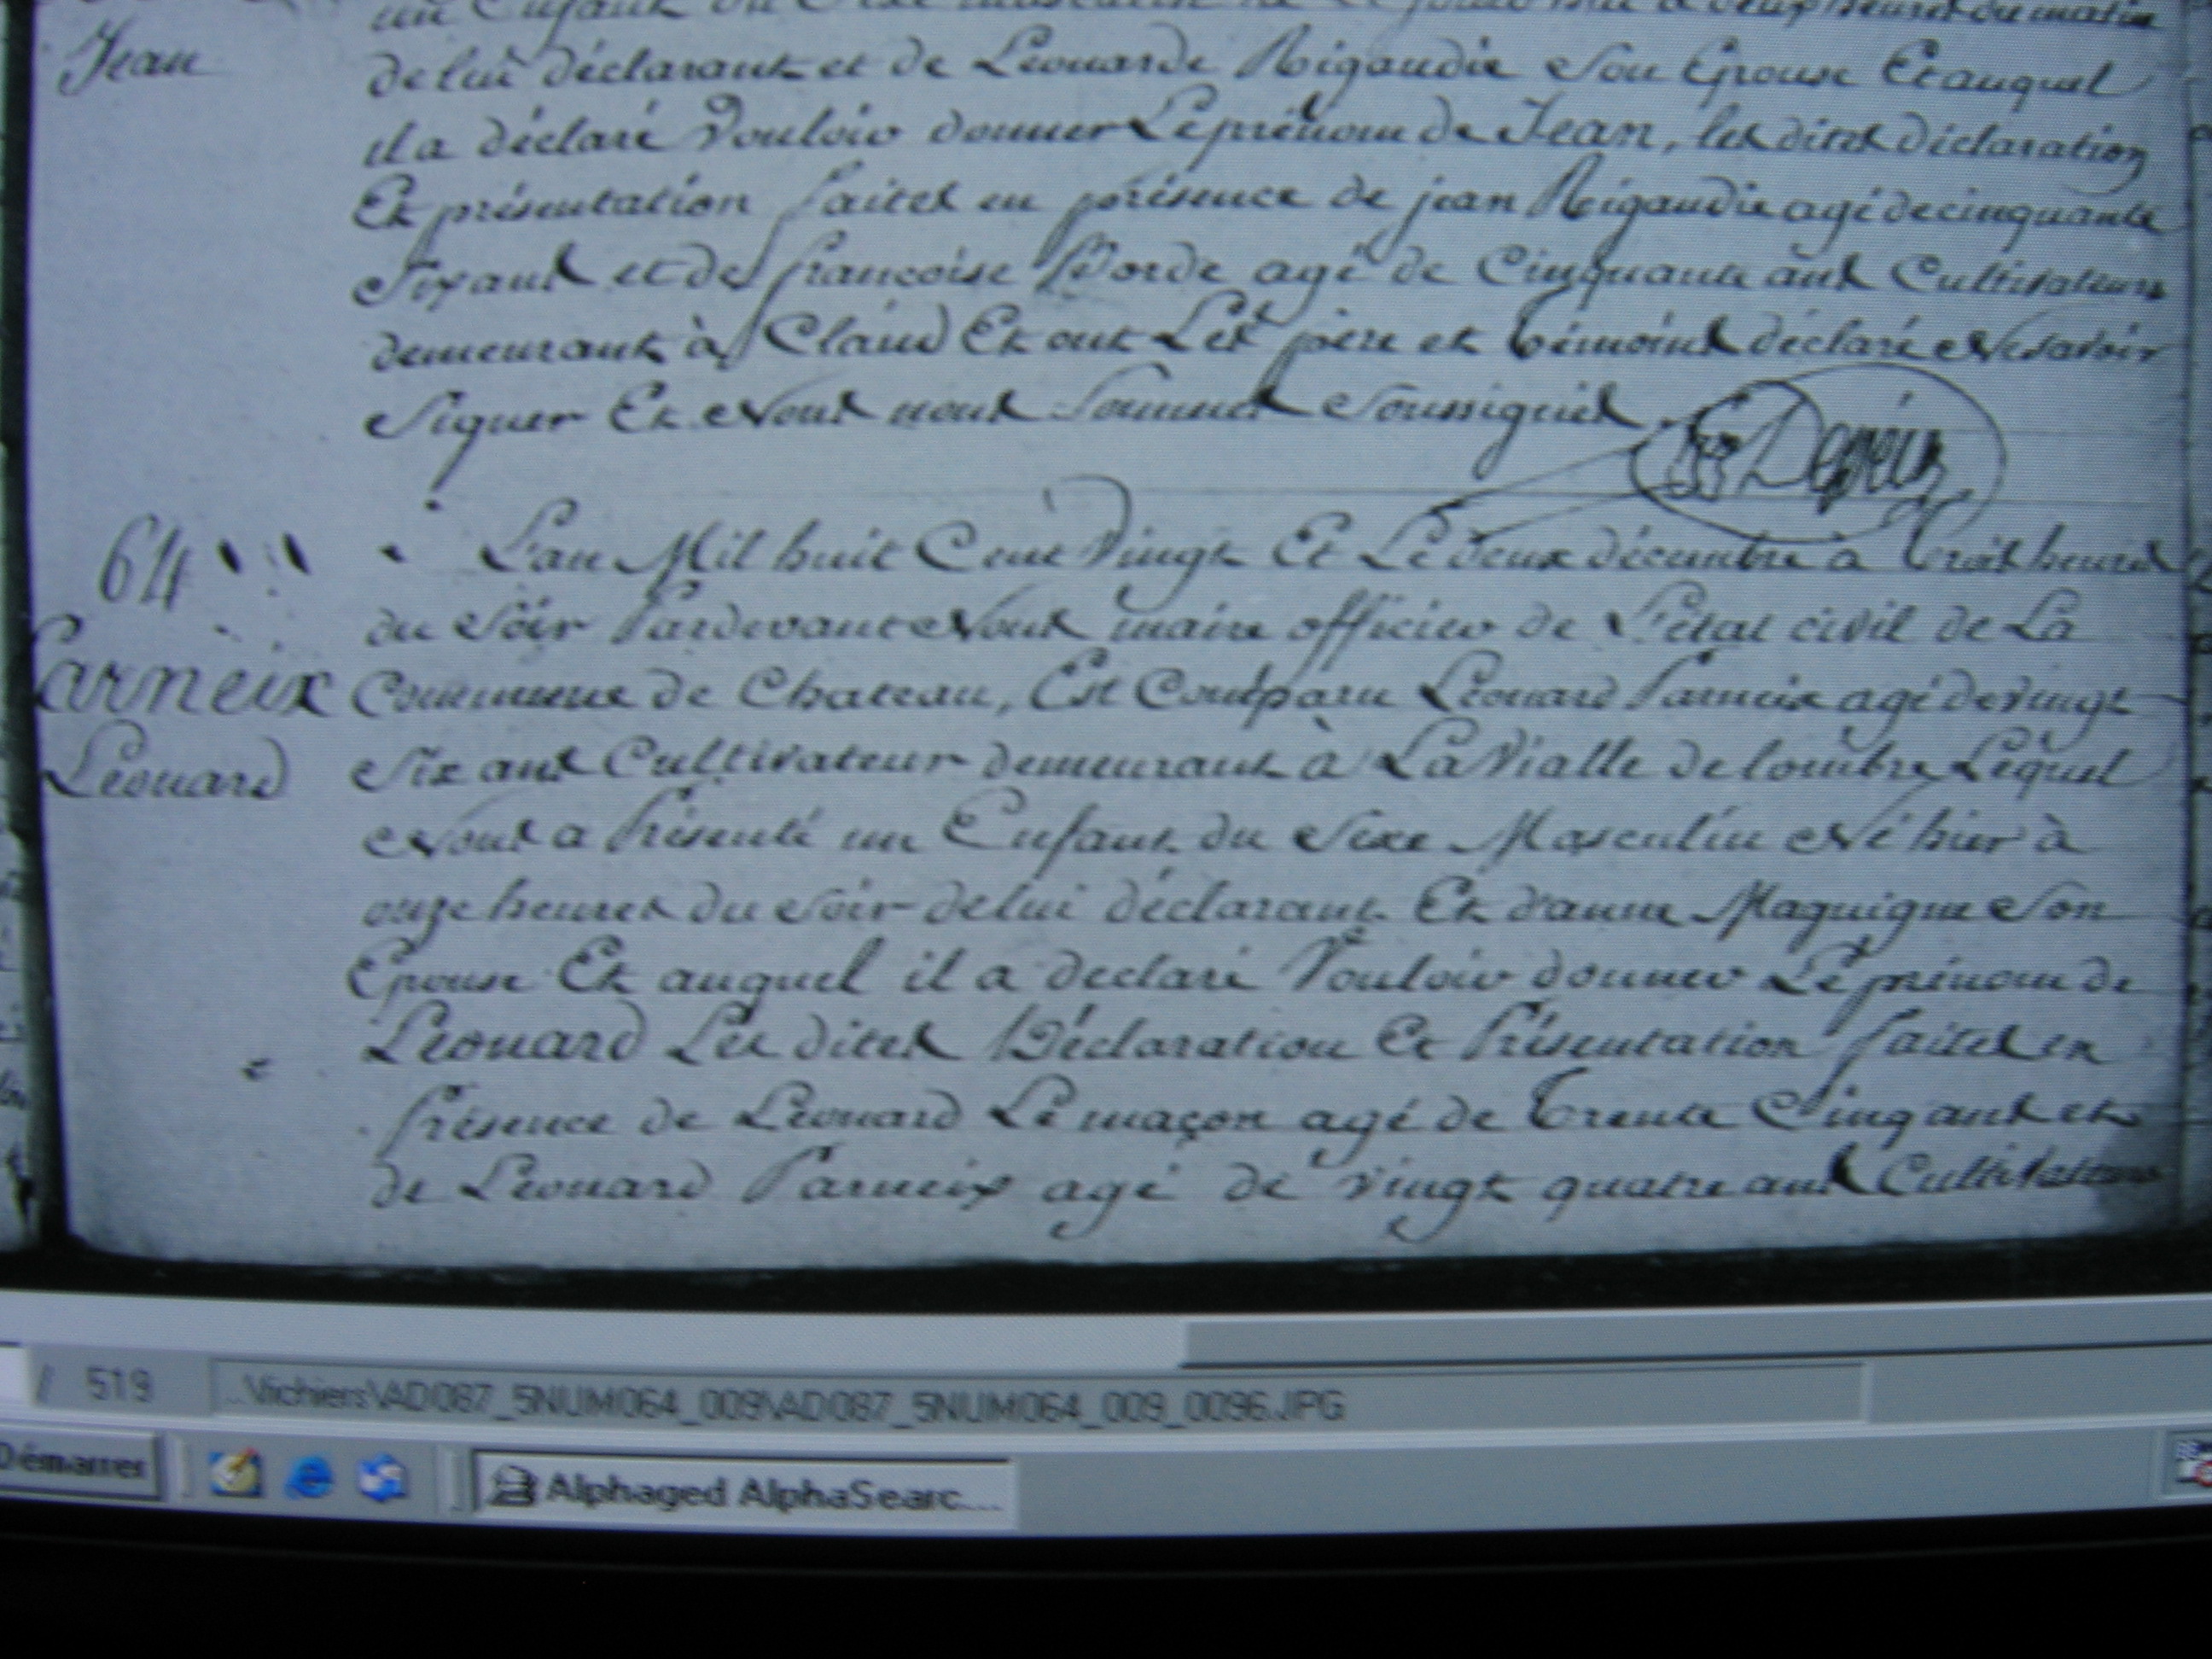 un Enfant du Sexe masculin né à deux heures du matin
Jean
de lui déclarant et de Léonarde Rigaudie son Epouse Et auquel
il a déclaré Vouloir donner Le prénom de Jean, les dites déclaration
Et présentation faites en présence de jean Rigaudie agé de cinquante
Six ans et de francoise Borde agé de Cinquante ans Cultivateurs
demeurant à Claud Et ont Les père et témoins déclaré Ne savoir
Signer Et Nous nous Sommes Soussignés
64
L'an Mil huit Cent Vingt Et Le deux décembre à trois heures
du Soir Pardevant Nous maire officier de L'état civil de La
Parneix
Commune de Chateau, Est Comparu Léonard Parneix agé de vingt
Léonard
Six ans Cultivateur demeurant à La Vialle de lombre Lequel
Nous a Présenté un Enfant du Sexe Masculin Né hier à
onze heures du Soir de lui déclarant Et d'anne Maquigne Son
Epouse Et auquel il a declaré Vouloir donner Le prénom de
Léonard Les dites Déclaration Et Présentation faites en
Présence de Léonard Le maçon agé de trente Cinq ans et
de Léonard Parneix agé de vingt quatre ans Cultivateurs
/ 519
...\fichiers\AD087_5NUM064_009\AD087_5NUM064_009_0096.JPG
Démarrer
Alphaged AlphaSearc...